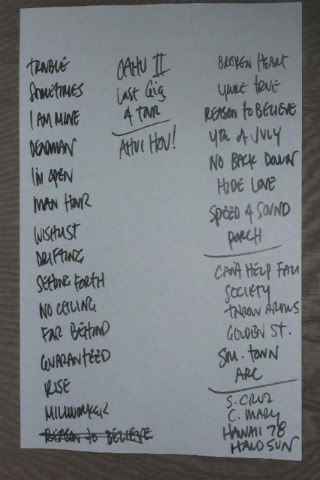 TROUBLE
SOMETIMES
I AM MINE
DEADMAN
I'M OPEN
MAN HOUR
WISHLIST
DRIFTING
SETTING FORTH
NO CEILING
FAR BEHIND
GUARANTEED
RISE
MILLWORKER
REASON TO BELIEVE
OAHU II
LAST GIG
4 TOUR
AHUI HOU!
BROKEN HEART
YOU'RE TRUE
REASON TO BELIEVE
4TH OF JULY
NO BACK DOWN
HIDE LOVE
SPEED OF SOUND
PORCH
CAN'T HELP FALL
SOCIETY
THROW ARMS
GOLDEN ST.
SM. TOWN
ARC
S. CRUZ
C. MARY
HAWAII 78
HARD SUN